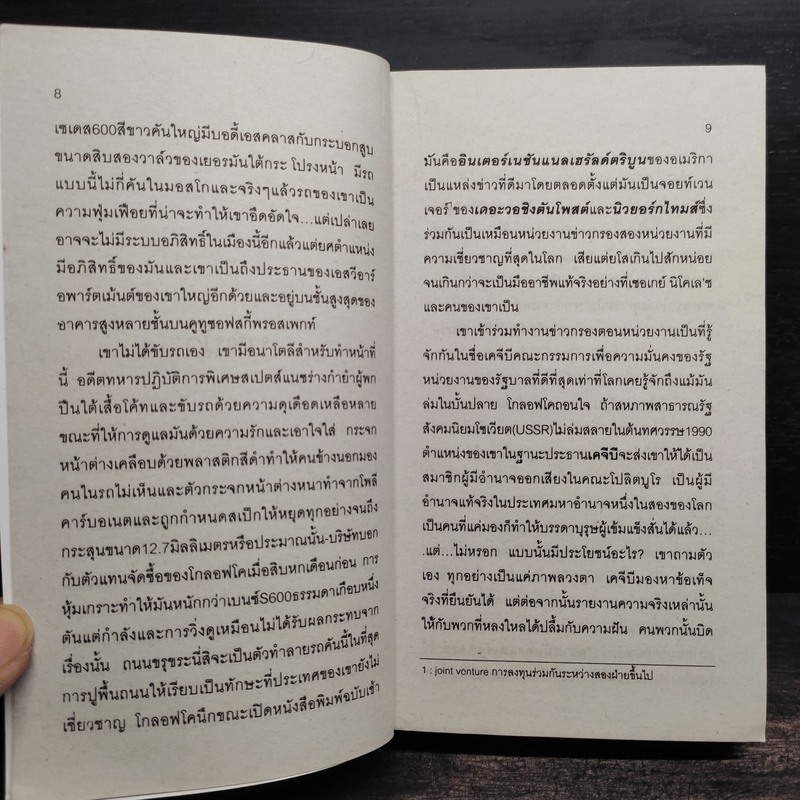 8
เซเดส600สีขาวคันใหญ่มีบอดี้เอสคลาสกับกระบอกสูบ
ขนาดสิบสองวาล์วของเยอรมันใต้กระโปรงหน้า มีรถ
แบบนี้ไม่กี่คันในมอสโกและจริงๆแล้วรถของเขาเป็น
ความฟุ่มเฟือยที่น่าจะทำให้เขาอึดอัดใจ...แต่เปล่าเลย
อาจจะไม่มีระบบอภิสิทธิ์ในเมืองนี้อีกแล้วแต่ยศตำแหน่ง
มีอภิสิทธิ์ของมันและเขาเป็นถึงประธานของเอสวีอาร์
อพาร์ตเม้นต์ของเขาใหญ่อีกด้วยและอยู่บนชั้นสูงสุดของ
อาคารสูงหลายชั้นบนคูทูซอฟสกี้พรอสเพกท์
เขาไม่ได้ขับรถเอง เขามีอนาโตลีสำหรับทำหน้าที่
นี้ อดีตทหารปฏิบัติการพิเศษสเปตส์แนซร่างกำยำผู้พก
ปืนใต้เสื้อโค้ทและขับรถด้วยความดุเดือดเหลือหลาย
ขณะที่ให้การดูแลมันด้วยความรักและเอาใจใส่ กระจก
หน้าต่างเคลือบด้วยพลาสติกสีดำทำให้คนข้างนอกมอง
คนในรถไม่เห็นและตัวกระจกหน้าต่างหนาทำจากโพลี
คาร์บอเนตและถูกกำหนดสเป็กให้หยุดทุกอย่างจนถึง
กระสุนขนาด12.7มิลลิเมตรหรือประมาณนั้น-บริษัทบอก
กับตัวแทนจัดซื้อของโกลอฟโคเมื่อสิบหกเดือนก่อน การ
หุ้มเกราะทำให้มันหนักกว่าเบนซ์S600ธรรมดาเกือบหนึ่ง
ตันแต่กำลังและการวิ่งดูเหมือนไม่ได้รับผลกระทบจาก
เรื่องนั้น ถนนขรุขระนี่สิจะเป็นตัวทำลายรถคันนี้ในที่สุด
การปูพื้นถนนให้เรียบเป็นทักษะที่ประเทศของเขายังไม่
เชี่ยวชาญ โกลอฟโคนึกขณะเปิดหนังสือพิมพ์ฉบับเช้า
9
มันคืออินเตอร์เนชันแนลเฮรัลด์ตริบูนของอเมริกา
เป็นแหล่งข่าวที่ดีมาโดยตลอดตั้งแต่มันเป็นจอยท์เวน
เจอร์¹ของเดอะวอชิงตันโพสต์และนิวยอร์กไทมส์ซึ่ง
ร่วมกันเป็นเหมือนหน่วยงานข่าวกรองสองหน่วยงานที่มี
ความเชี่ยวชาญที่สุดในโลก เสียแต่ยโสเกินไปสักหน่อย
จนเกินกว่าจะเป็นมืออาชีพแท้จริงอย่างที่เซอเกย์ นิโคเล'ช
และคนของเขาเป็น
เขาเข้าร่วมทำงานข่าวกรองตอนหน่วยงานเป็นที่รู้
จักกันในชื่อเคจีบีคณะกรรมการเพื่อความมั่นคงของรัฐ
หน่วยงานของรัฐบาลที่ดีที่สุดเท่าที่โลกเคยรู้จักถึงแม้มัน
ล่มในบั้นปลาย โกลอฟโคถอนใจ ถ้าสหภาพสาธารณรัฐ
สังคมนิยมโซเวียต(USSR)ไม่ล่มสลายในต้นทศวรรษ1990
ตำแหน่งของเขาในฐานะประธานเคจีบีจะส่งเขาให้ได้เป็น
สมาชิกผู้มีอำนาจออกเสียงในคณะโปลิตบูโร เป็นผู้มี
อำนาจแท้จริงในประเทศมหาอำนาจหนึ่งในสองของโลก
เป็นคนที่แค่มองก็ทำให้บรรดาบุรุษผู้เข้มแข็งสั่นได้แล้ว...
...แต่...ไม่หรอก แบบนั้นมีประโยชน์อะไร? เขาถามตัว
เอง ทุกอย่างเป็นแค่ภาพลวงตา เคจีบีมองหาข้อเท็จ
จริงที่ยืนยันได้ แต่ต่อจากนั้นรายงานความจริงเหล่านั้น
ให้กับพวกที่หลงใหลได้ปลื้มกับความฝัน คนพวกนั้นบิด
1 : joint venture การลงทุนร่วมกันระหว่างสองฝ่ายขึ้นไป